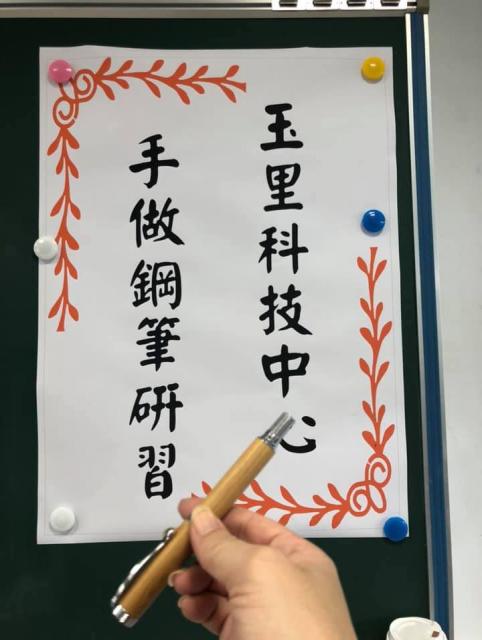 玉里科技中心
手做鋼筆研習